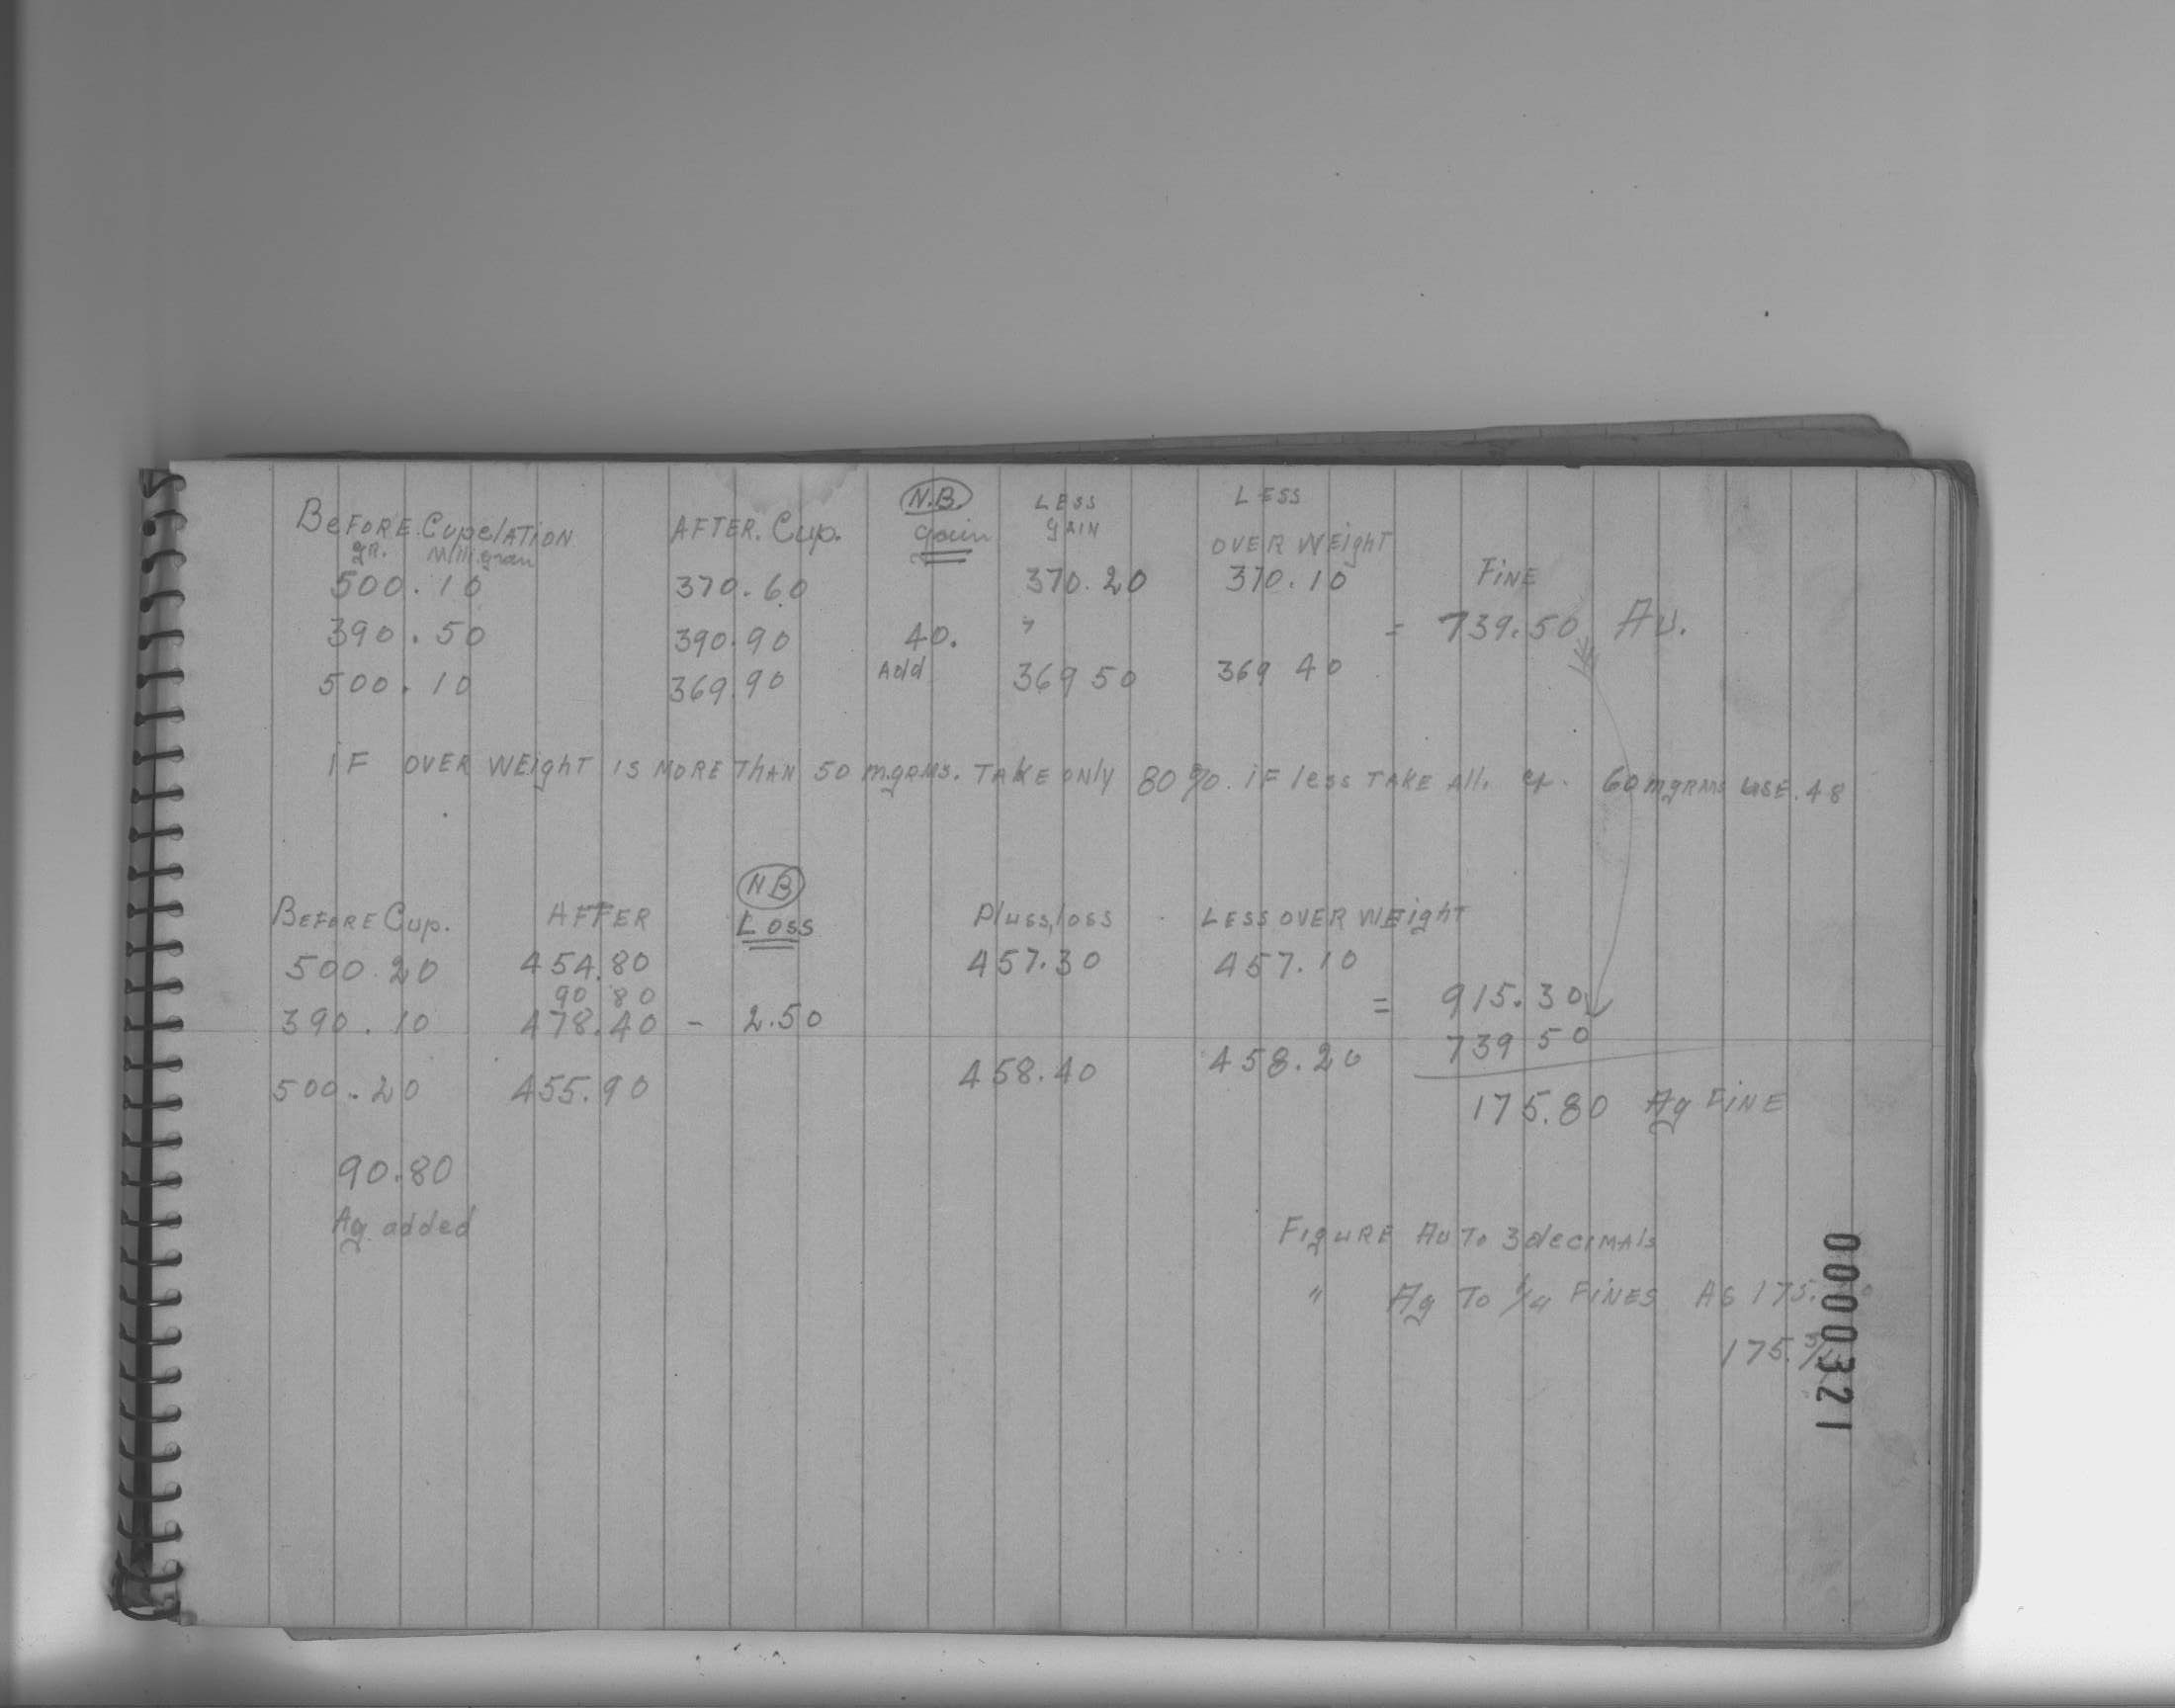 N.B. LESS LESS
BEFORE Cupelation AFTER. Cup. gain gain OVER WEIGHT
gr. Milligram
500.10 370.60 370.20 370.10 FINE
390.50 390.90 40. " = 739.50 Au.
500.10 369.90 Add 369 50 369 40
IF OVER WEIGHT IS MORE THAN 50 mgrms. TAKE ONLY 80%. IF less TAKE All. 60 mgrms use. 48
N B
BEFORE Cup. AFTER Loss Pluss loss LESS OVER WEIGHT
500.20 454.80 457.30 457.10
90 80 = 915.30
390.10 478.40 - 2.50 739 50
500.20 455.90 458.40 458.20
175.80 Ag FINE
90.80
Ag added
Figure Au To 3 decimals
" Ag To 1/4 FINES AS 175.
175.
0000321